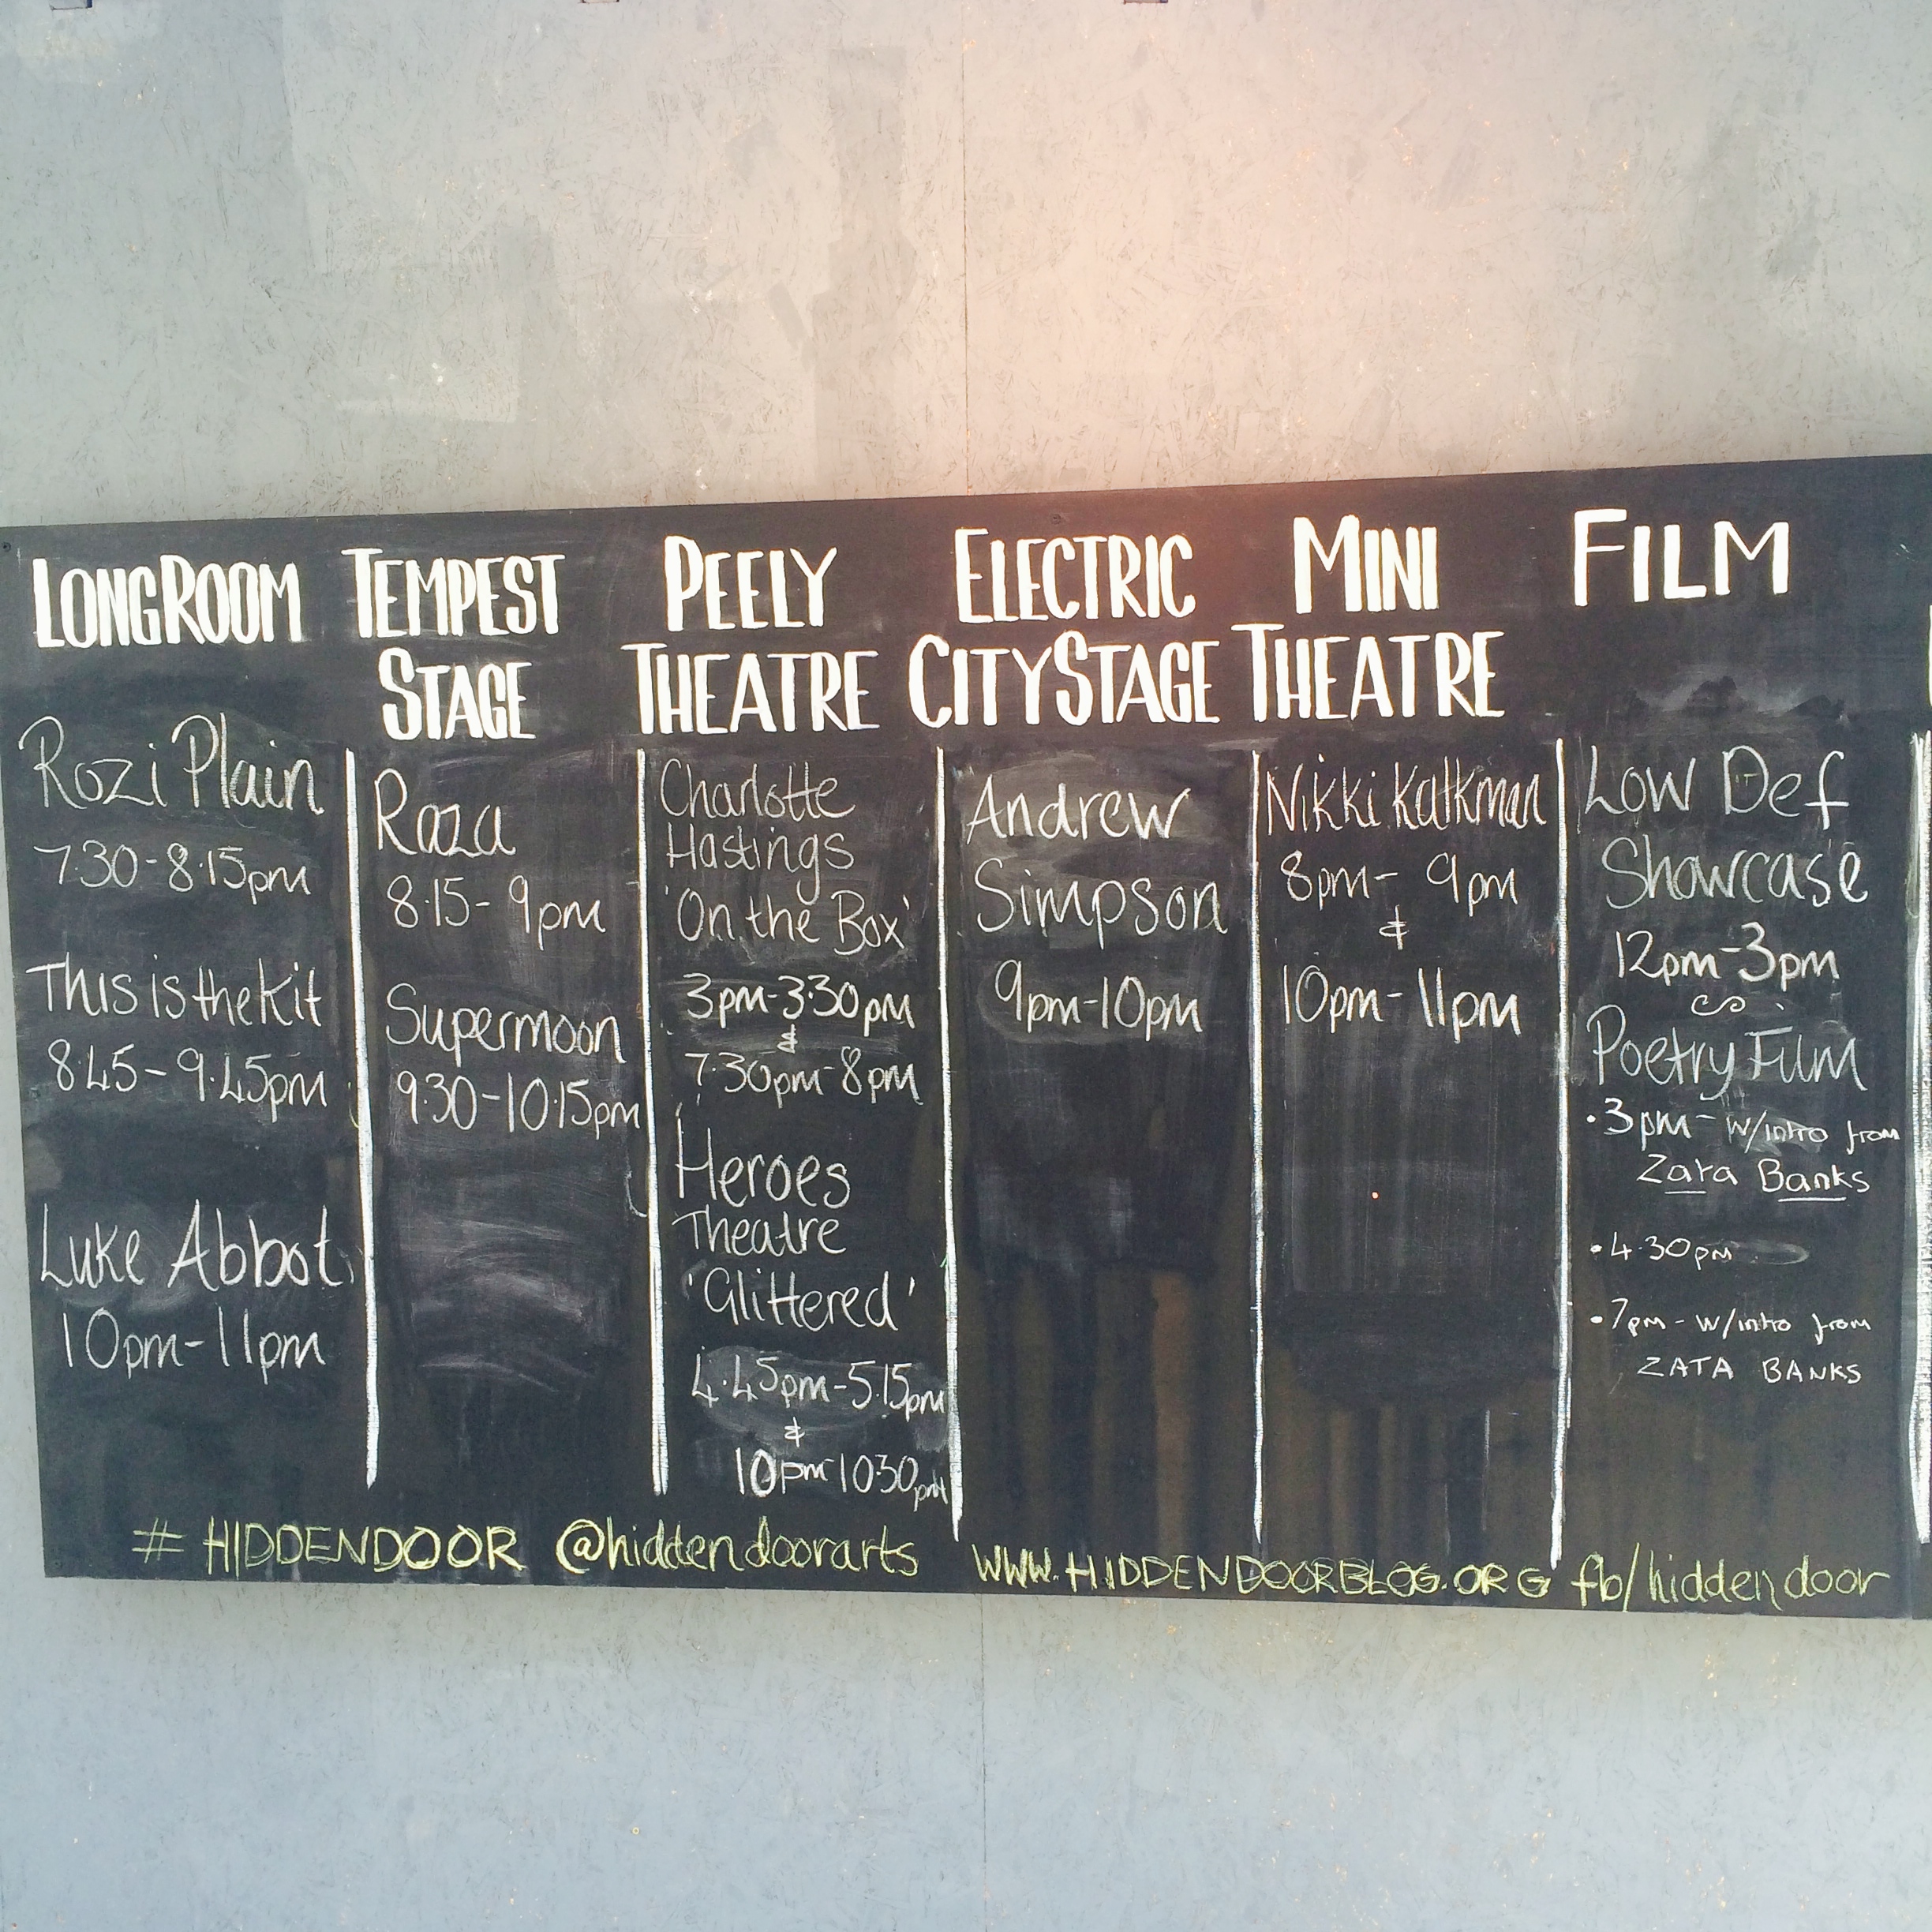 LONGROOM
Rozi Plain
7.30-8.15pm
This is the Kit
8.45-9.45pm
Luke Abbot
10pm-11pm
TEMPEST
STAGE
Raza
8.15-9pm
Supermoon
9.30-10.15pm
PEELY
THEATRE
Charlotte
Hastings
'On the Box'
3pm-3.30pm
&
7.30pm-8pm
Heroes
Theatre
'Glittered'
4.45pm-5.15pm
&
10pm-10.30pm
ELECTRIC
CITY STAGE
Andrew
Simpson
9pm-10pm
MINI
THEATRE
Nikki Kalkman
8pm-9pm
&
10pm-11pm
FILM
Low Def
Showcase
12pm-3pm
Poetry Film
•3pm- w/intro from
Zata Banks
•4.30pm
•7pm- w/intro from
ZATA BANKS
# HIDDENDOOR @hiddendoorarts WWW.HIDDENDOORBLOG.ORG fb/hiddendoor